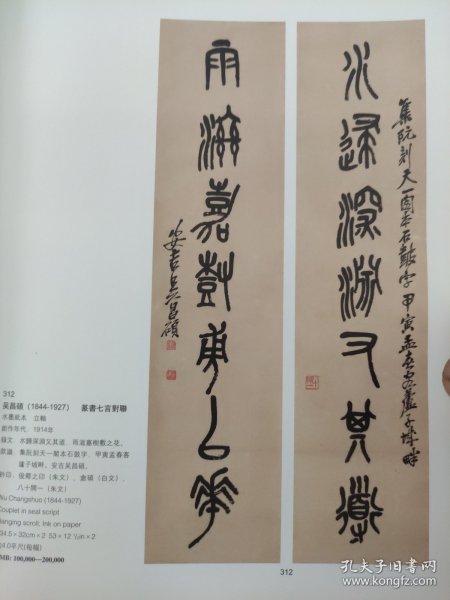 水歸深淵又其道
集阮刻天一閣本石鼓字甲寅孟春客蘆子城畔
雨滋嘉樹
安吉吳昌碩
312
吴昌碩(1844-1927) 篆書七言對聯
水墨紙本 立軸
創作年代:1914年
釋文:水歸深淵又其道,雨滋嘉樹敷之花。
款識:集阮刻天一閣本石鼓字。甲寅孟春客
蘆子城畔。安吉吴昌碩。
鈐印:俊卿之印(朱文)、倉碩(白文)、
(朱文)
Wu Changshuo (1844-1927)
Couplet in seal script
Hanging scroll; Ink on paper
34.5×32cm×2 53×12 ½in×2
4.0平尺(每幅)
RMB: 100,000—200,000
312
孔夫子旧书网